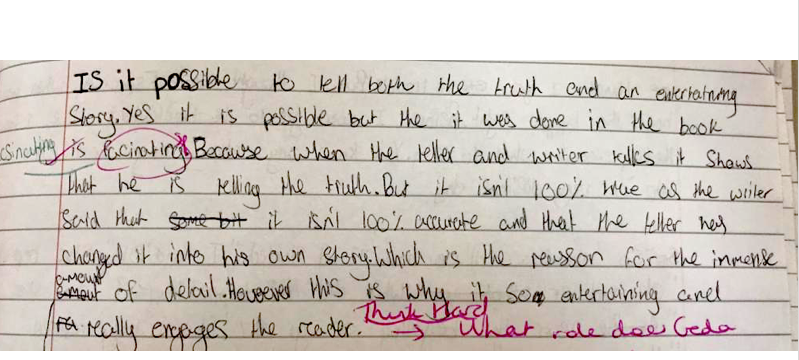 IS it possible to tell both the truth and an entertaining
Story. Yes it is possible but the it was done in the book
is facinating. Because when the teller and writer talks it shows
that he is telling the truth. But it isn't 100% true as the writer
Said that some bit it isn't 100% accurate and that the teller has
changed it into his own story. Which is the reasson for the immense
amount of detail. However this is why it So entertaining and
really engages the reader. Think Hard
→ What role does